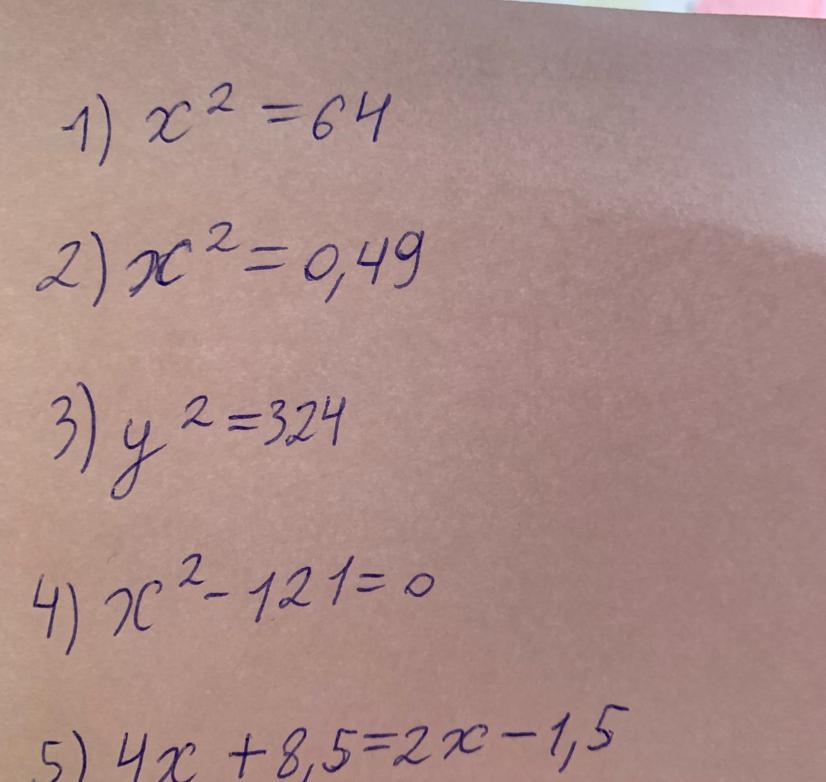 1) x² = 64
2) x² = 0,49
3) y² = 324
4) x² - 121 = 0
5) 4x + 8,5 = 2x - 1,5